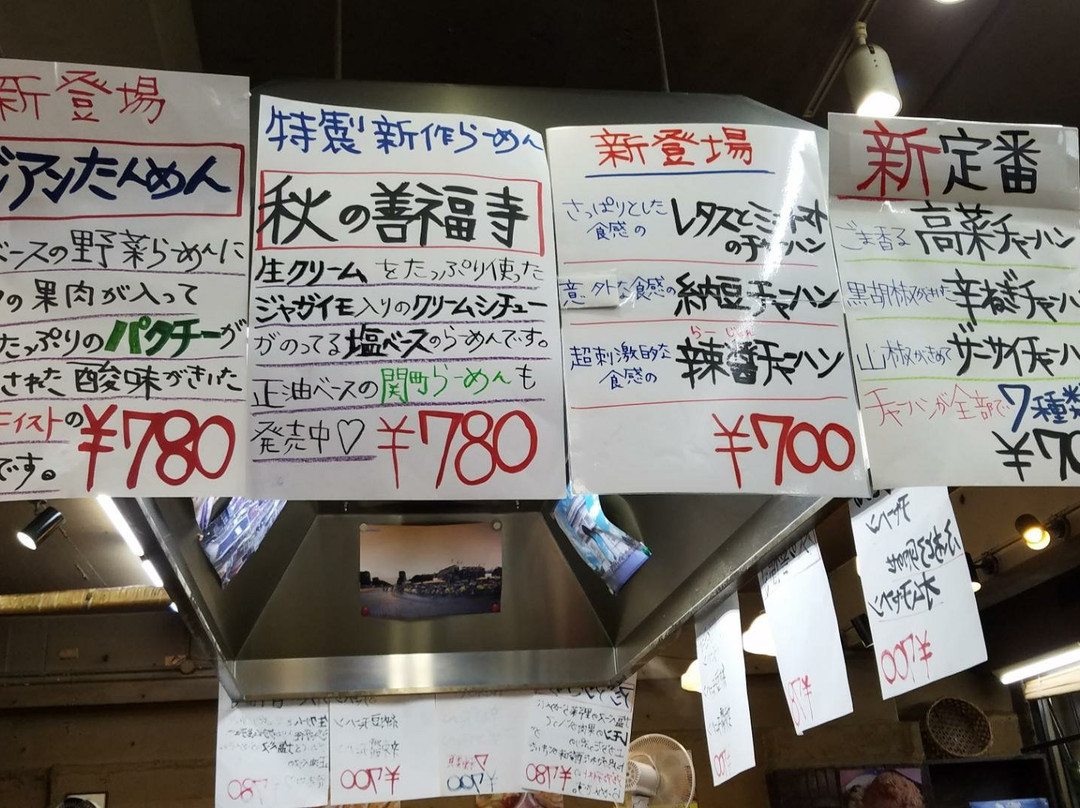 新登場
ジアンたんめん
ベースの野菜らーめんに
の果肉が入って
たっぷりのパクチーが
された酸味がきいた
テイストの
です。
¥780
特製新作らーめん
秋の善福寺
生クリームをたっぷり使った
ジャガイモ入りのクリームシチュー
がのってる塩ベースのらーめんです。
正油ベースの関町らーめんも
発売中♡ ¥780
新登場
さっぱりとした食感の
レタスとミニトマト
のチャーハン
意外な食感の納豆チャーハン
らー じゃん
超刺激的な食感の
辣醤チャーハン
¥700
新定番
ごま香る高菜チャーハン
黒胡椒がきいた辛ねぎチャーハ
山椒がきめてザーサイチャーハ
チャーハンが全部で7種類
¥70
¥780
¥700
¥700
¥780
¥700